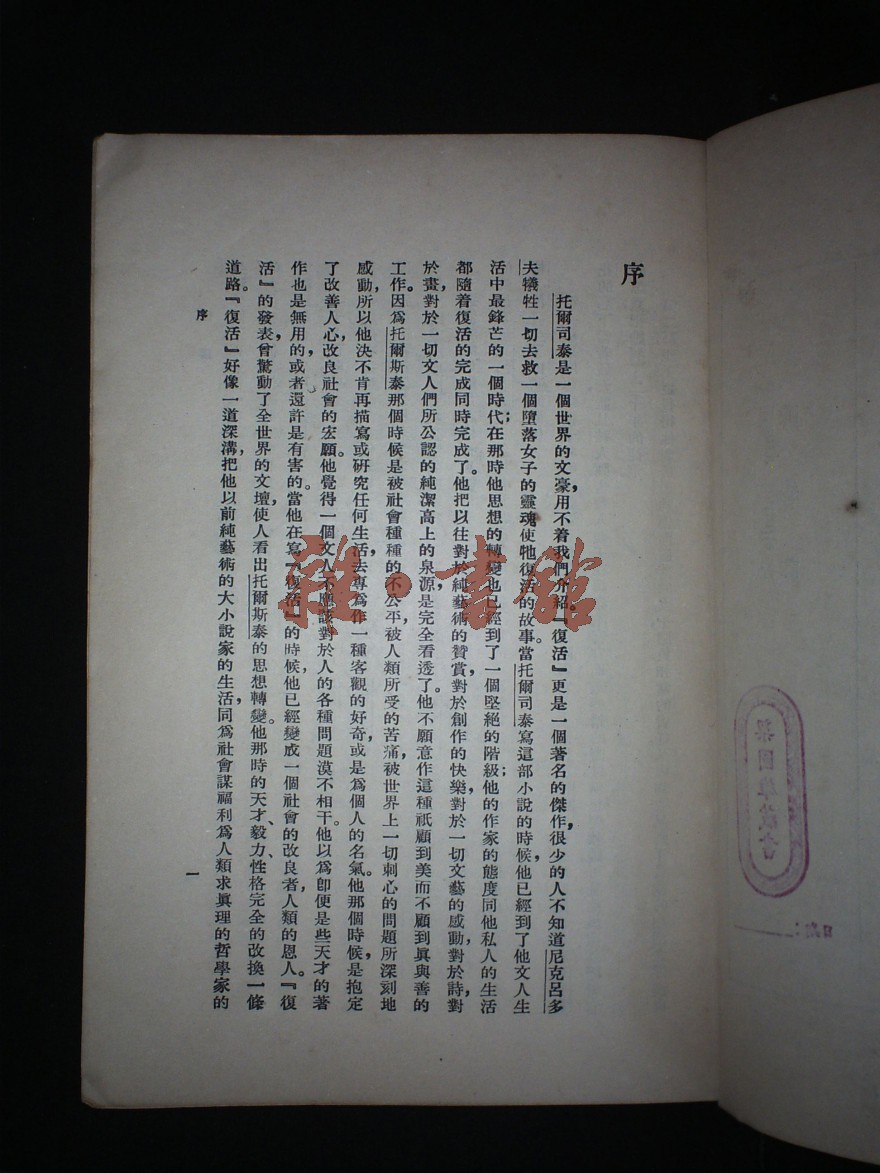 序
托爾司泰是一個世界的文豪，用不着我們介紹。『復活』更是一個著名的傑作，很少的人不知道尼克呂多
夫犧牲一切去救一個墮落女子的靈魂使牠復活的故事。當托爾司泰寫這部小說的時候，他已經到了他文人生
活中最鋒芒的一個時代；在那時他思想的轉變也已經到了一個堅絕的階級；他的作家的態度同他私人的生活
都隨着復活的完成同時完成了。他把以往對於純藝術的贊賞，對於創作的快樂，對於一切文藝的感動，對於詩，對
於畫，對於一切文人們所公認的純潔高上的泉源，是完全看透了。他不願意作這種祇顧到美而不顧到眞與善的
工作。因爲托爾斯泰那個時候是被社會種種的不公平，被人類所受的苦痛，被世界上一切刺心的問題所深刻地
感動，所以他決不肯再描寫或研究任何生活，去專爲作一種客觀的好奇，或是爲個人的名氣。他那個時候，是抱定
了改善人心，改良社會的宏願。他覺得一個文人不應該對於人的各種問題漠不相干。他以爲卽便是些天才的著
作也是無用的，或者還許是有害的。當他在寫『復活』的時候，他已經變成一個社會的改良者，人類的恩人。『復
活』的發表，曾驚動了全世界的文壇，使人看出托爾斯泰的思想轉變。他那時的天才、毅力、性格完全的改換一條
道路。『復活』好像一道深溝，把他以前純藝術的大小說家的生活，同爲社會謀福利爲人類求眞理的哲學家的
序
一
雜·書館